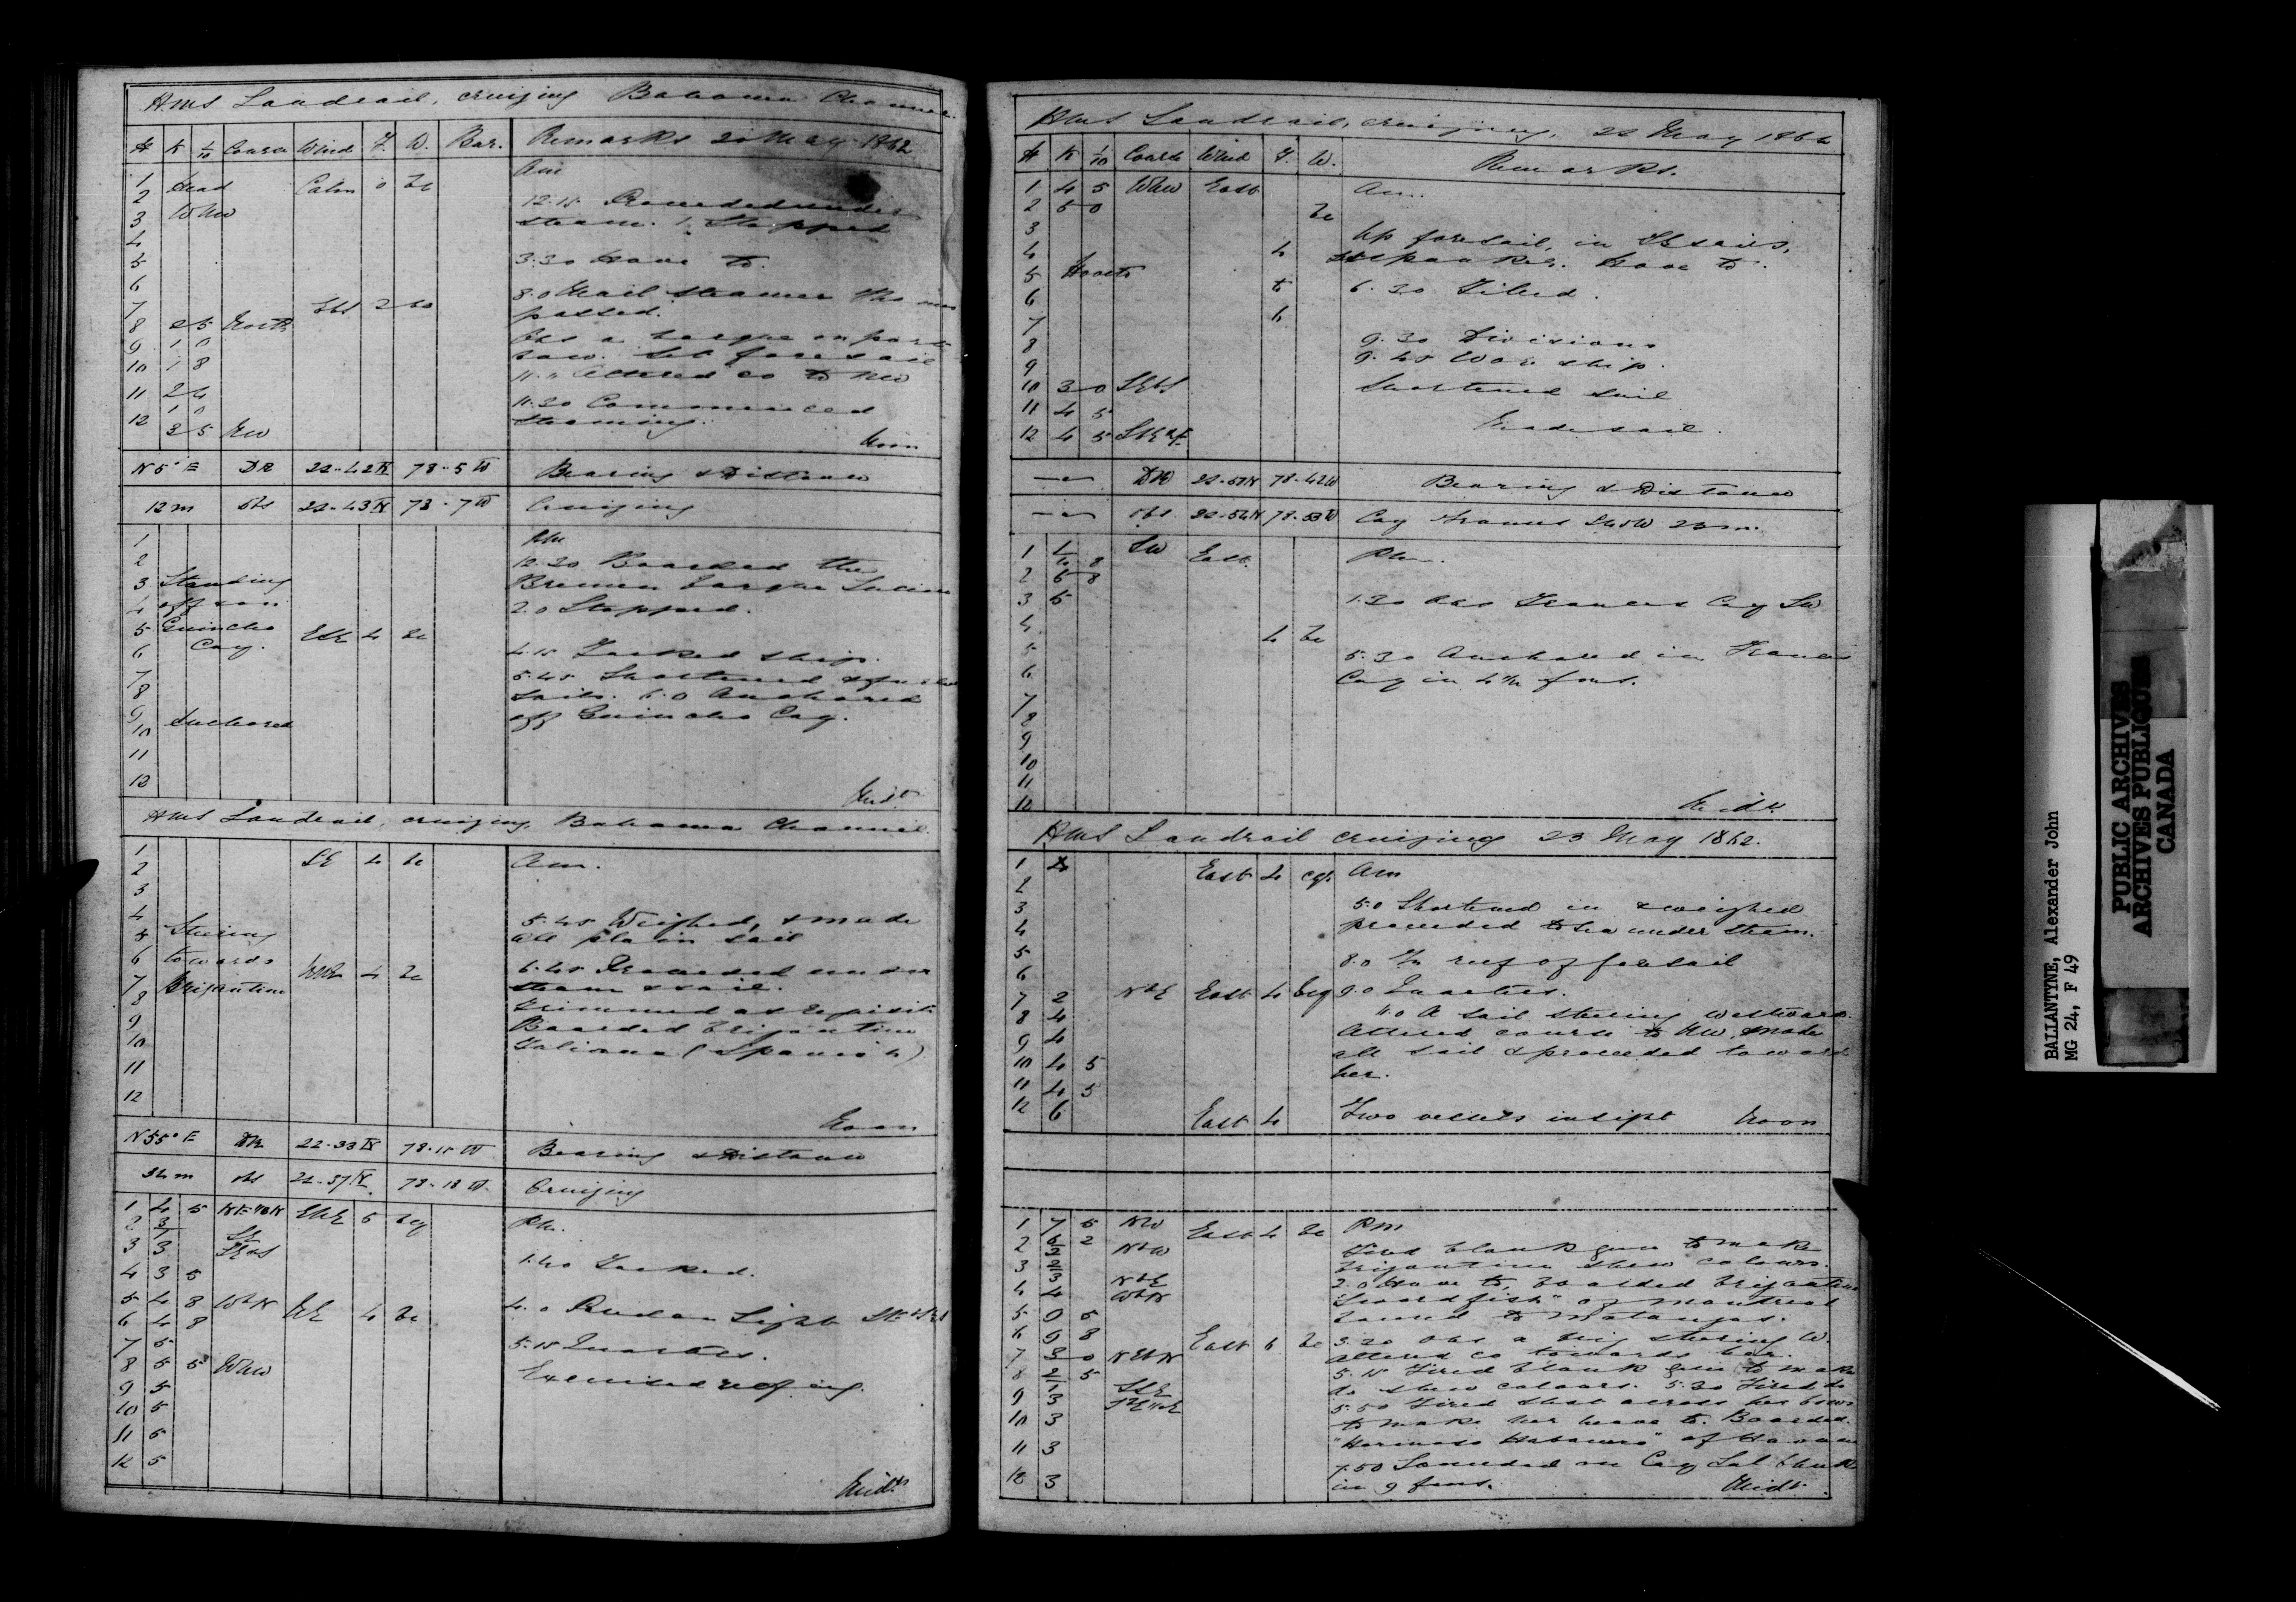 HMS Landrail, cruizing Bahama Channel.
H K 1/10 Course Wind F. W. Bar. Remarks 20 May 1862
Am
1 Head Calm 0 bc
2 WNW
12.15 Proceeded under
3 steam. 1. Stopped
4
5 3.30 Hove to.
6
7 2 bc 8.0 Mail steamer
8 2 5 North passed.
9 1 0 Obs a barque on port
bow. Set foresail
10 1 8 11.0 Altered co to NW
11 2 4 11.30 Commenced
1 0 steaming.
12 3 5 NW Noon
N 5° E DR 22-42 N 78-5 W Bearing & Distance
13 m obs 22-43 N 78-7 W Cruizing
1 PM
2 12.30 Boarded the
3 Standing Bremen barque
4 off & on 2.0 Stopped.
5 Guincho ESE 4 bc
6 Cay. 4.15 Tacked ship.
7 5.45 Shortened & furled
8 sails. 6.0 Anchored
9 Anchored off Guincho Cay.
10
11
12 Midt
HMS Landrail, cruizing, Bahama Channel.
1 SE 4 bc Am.
2
3
4 5.45 Weighed, & made
5 Steering all plain sail
6 towards 4 bc 6.45 Proceeded under
7 Brigantine steam & sail.
8 Trimmed as requisite
9 Boarded brigantine
10 (Spanish)
11
12 Noon
N 55° E DR 22-33 N 78-15 W Bearing & Distance
34 m obs 22-37 N 78-18 W Cruizing
1 4 5 5 bcq PM.
2 3
3 3 1.40 Tacked.
4 3 5
5 4 8 WbN NE 4 bc 4.0 Light
6 4 8
7 5 5.15 Quarters.
8 5 5 WNW Exercised reefing.
9 5
10 5
11 5
12 5 Midt
HMS Landrail, cruizing, 22 May 1862
H K 1/10 Course Wind F. W. Remarks.
1 4 5 WNW East Am.
2 5 0 bc
3 Up foresail, in
4 4 spanker. Hove to.
5 Hove to
6 6.30 Filled.
7
8 9.30 Divisions
9 9.45 Wore ship.
10 3 0 SEbS Shortened sail
11 4 5
12 4 5 Made sail.
DR 22-57 N 78-42 W Bearing & Distance
obs 22-54 N 78-53 W Cay Frances 23 m.
1 SW East PM.
2
3 5 1.30 Obs Frances Cay SW
4 4 bc
5 5.30 Anchored in Frances
6 Cay in 4½ fms.
7
8
9
10
11
12 Midt.
HMS Landrail cruizing 23 May 1862.
1 East 4 Am
2
3 5.0 Shortened in & weighed
4 proceeded to sea under steam.
5 8.0 reef of foresail
6
7 2 NbE East 4 bcq 9.0 Quarters.
8 4 11.0 A sail steering westward.
9 4 Altered course to NW, made
10 4 5 all sail & proceeded towards
11 4 5 her.
12 6 East 4 Two vessels in sight Noon
1 7 5 NW East 4 bc PM
2 NbW Fired blank gun to make
3 brigantine shew colours.
NbE 2.0 Hove to, boarded brigantine
4 4 WbN "Swordfish" of Montreal
5 0 5 bound to Matanzas.
6 0 8 East bc 3.20 Obs a brig steering W.
7 3 0 NEbN Altered co towards her.
8 2 5 5.15 Fired blank gun to make
9 3 SSE do shew colours. 5.30 Fired do
10 3 5.50 Fired shot across her bows
to make her heave to. Boarded
11 3 "Hermoso Habanero" of Havana
7.50 Sounded on Cay Sal bank
12 3 in 9 fms. Midt.
BALLANTYNE, Alexander John
MG 24, F 49
PUBLIC ARCHIVES
ARCHIVES PUBLIQUES
CANADA